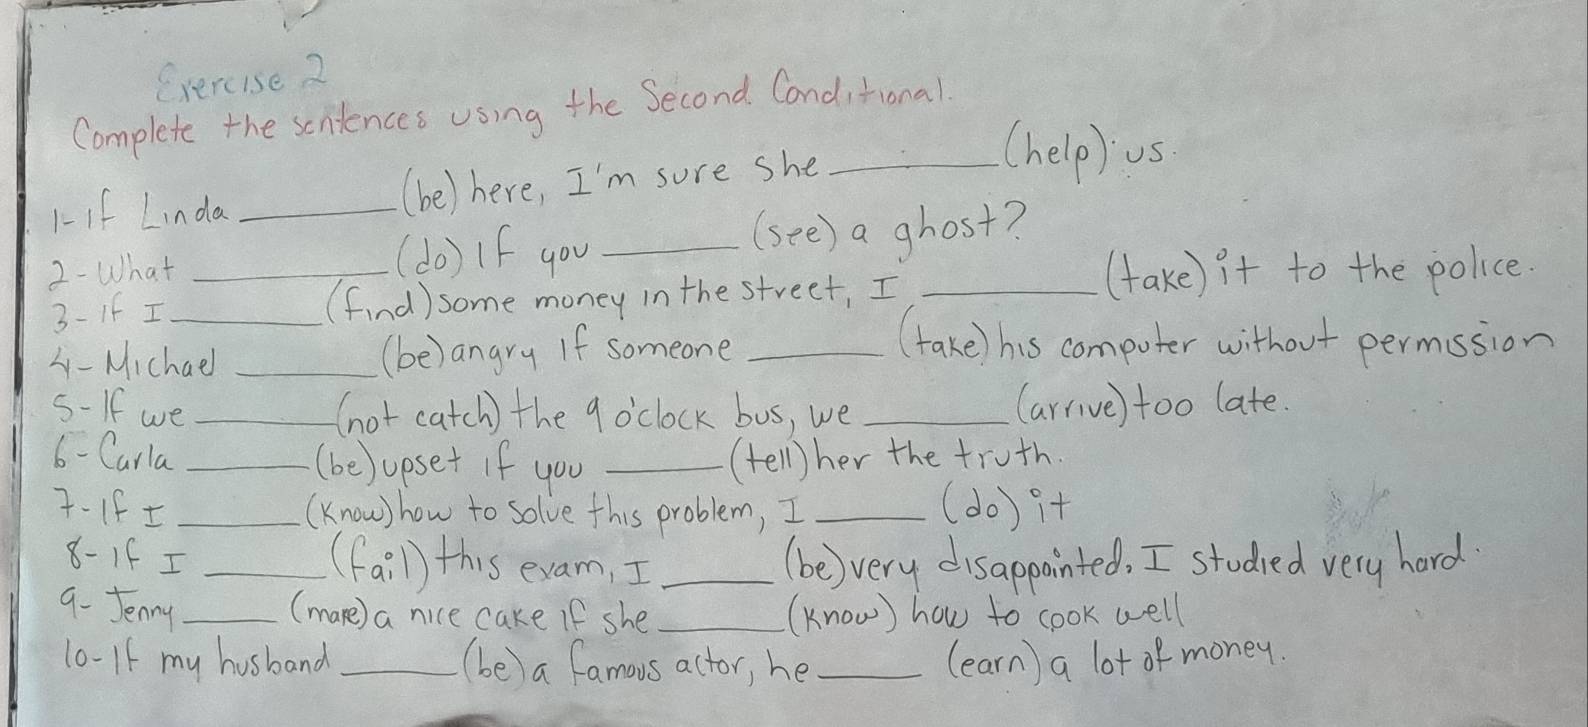 Exercise 2
Complete the sentences using the Second Conditional.
1- If Linda ________ (be) here, I'm sure she ________ (help) us.
2- What ________ (do) If you ________ (see) a ghost?
3- If I ________ (find) some money in the street, I ________ (take) it to the police.
4- Michael ________ (be) angry If someone ________ (take) his computer without permission
5- If we ________ (not catch) the 9 o'clock bus, we ________ (arrive) too late.
6- Carla ________ (be) upset if you ________ (tell) her the truth.
7- If I ________ (know) how to solve this problem, I ________ (do) it
8- If I ________ (fail) this exam, I ________ (be) very disappointed. I studied very hard.
9- Jenny ________ (make) a nice cake If she ________ (know) how to cook well
10- If my husband ________ (be) a famous actor, he ________ (earn) a lot of money.